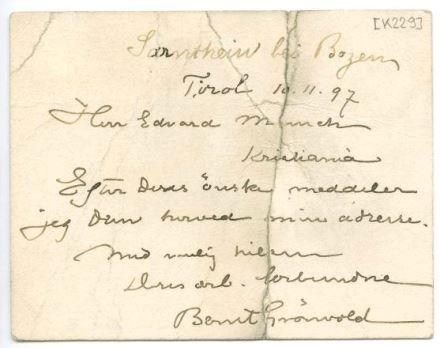 [K229]
Sarnthein bei Bozen
Tirol 10.11.97
Herr Edvard Munch
Kristiania
Efter Deres önske meddeler
jeg Dem herved min adresse.
Med venlig hilsen
Deres erb. forbundne
Bernt Grönvold